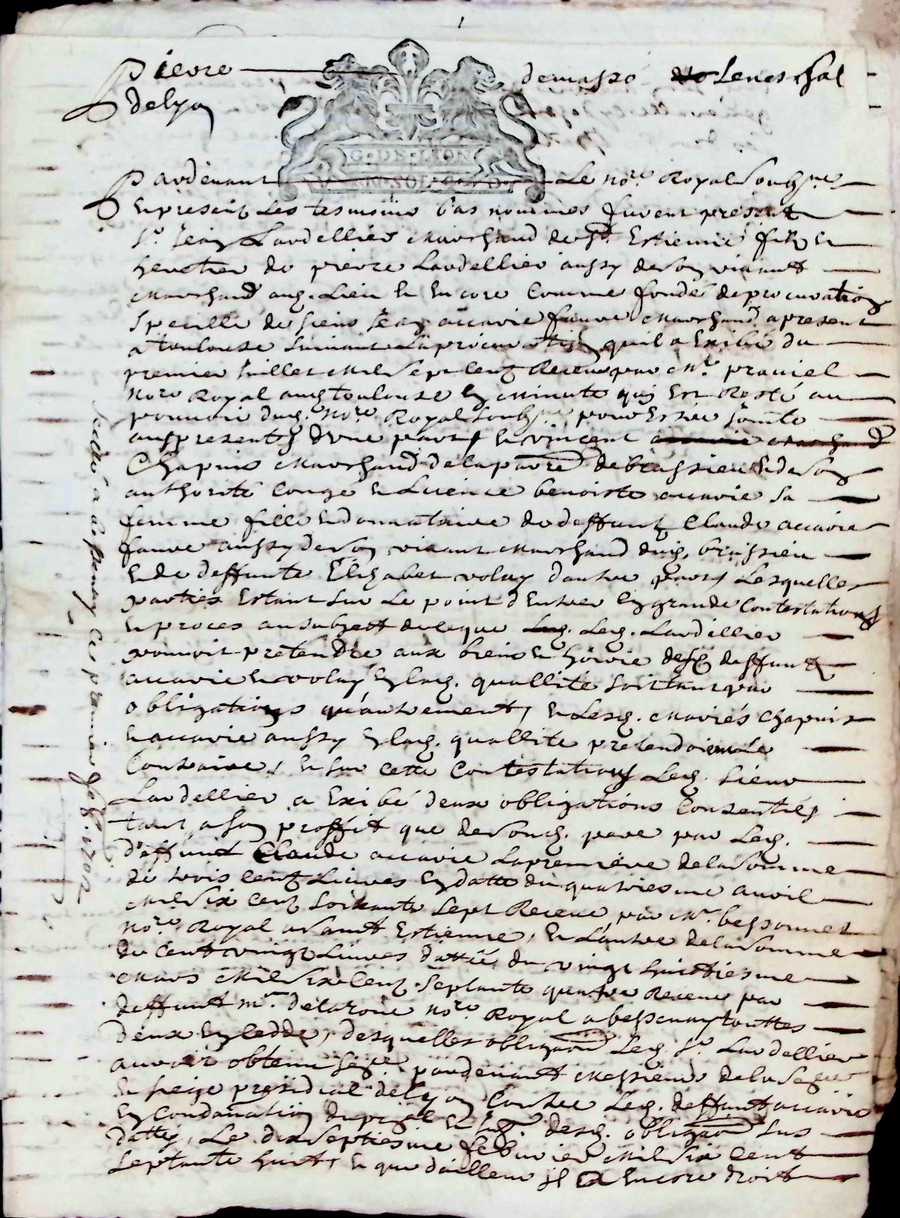 Pierre demasso seneschal
delyon
G·DE·LION
Pardevant Le no.re Royal soubs.ne
En present Les tesmoins bas nommes furent presents
S.r Jean Lardellier Marchand de S.t Estienne fils &
heretier de pierre Lardellier aussy de son vivant
Marchand aud. Lieu Et Encore Comme fondé de procuration
specialle de sieur Jean accarie fauure Marchand a present
a Toulouse suivant La procuration quil a Exibé du
premier Juillet Mil sept Cent Receue par M.e praviel
No.re Royal aud. toulouse En Minute qui Est Resté au
pouvoir dud. No.re Royal soubs.ne pour Estre Jointe
aux presentes d'vne part Et vincent
Chapuis Marchand de la parr.e de brussieu & de son
authorité Congé & Licence benoiste accarie sa
femme fille & donnataire de deffunt Claude accarie
fauure aussy de son vivant Marchand dud. brussieu
& de deffunte Elizabet volay dautre part Lesquelles
parties Estant sur Le point d'Entrer En grande Contestations
& proces au subject de Ce que Led. Lardellier
pouvoit pretendre aux biens & hoirie desd. deffuncts
accarie & volay En lad. quallité soit tant par
obligations qu'autrement, & Lesd. Mariés Chapuis
& accarie aussy En lad. quallité pretendoient Le
Contraire, & sur Cette Contestations Led. sieur
Lardellier a Exibé deux obligations Consenties
tant a son proffit que de sond. pere par Led.
deffunt Claude accarie La premiere de la somme
de trois Cent Livres En datte du quatriesme avril
Mil six Cent soixante sept Receue par M.e bessonnet
No.re Royal a saint Estienne, & Lautre de la somme
de Cent vingt Livres dattée du vingt huictiesme
Mars Mil six Cent septante quatre Receue par
deffunt M.e no.re Royal a bessenay touttes
deux desquelles obligaons Led. S.r Lardellier
auroit obtenu pardevant Messieurs de la
& siege presidial de Lyon Contre Led. deffunt accarie
En Condamnation du desd. obligaons sus
dattés, Le dix septiesme febvrier Mil six Cent
septante huict, & que dailleurs Il a Encore droit
a bessenay Ce premier 1702